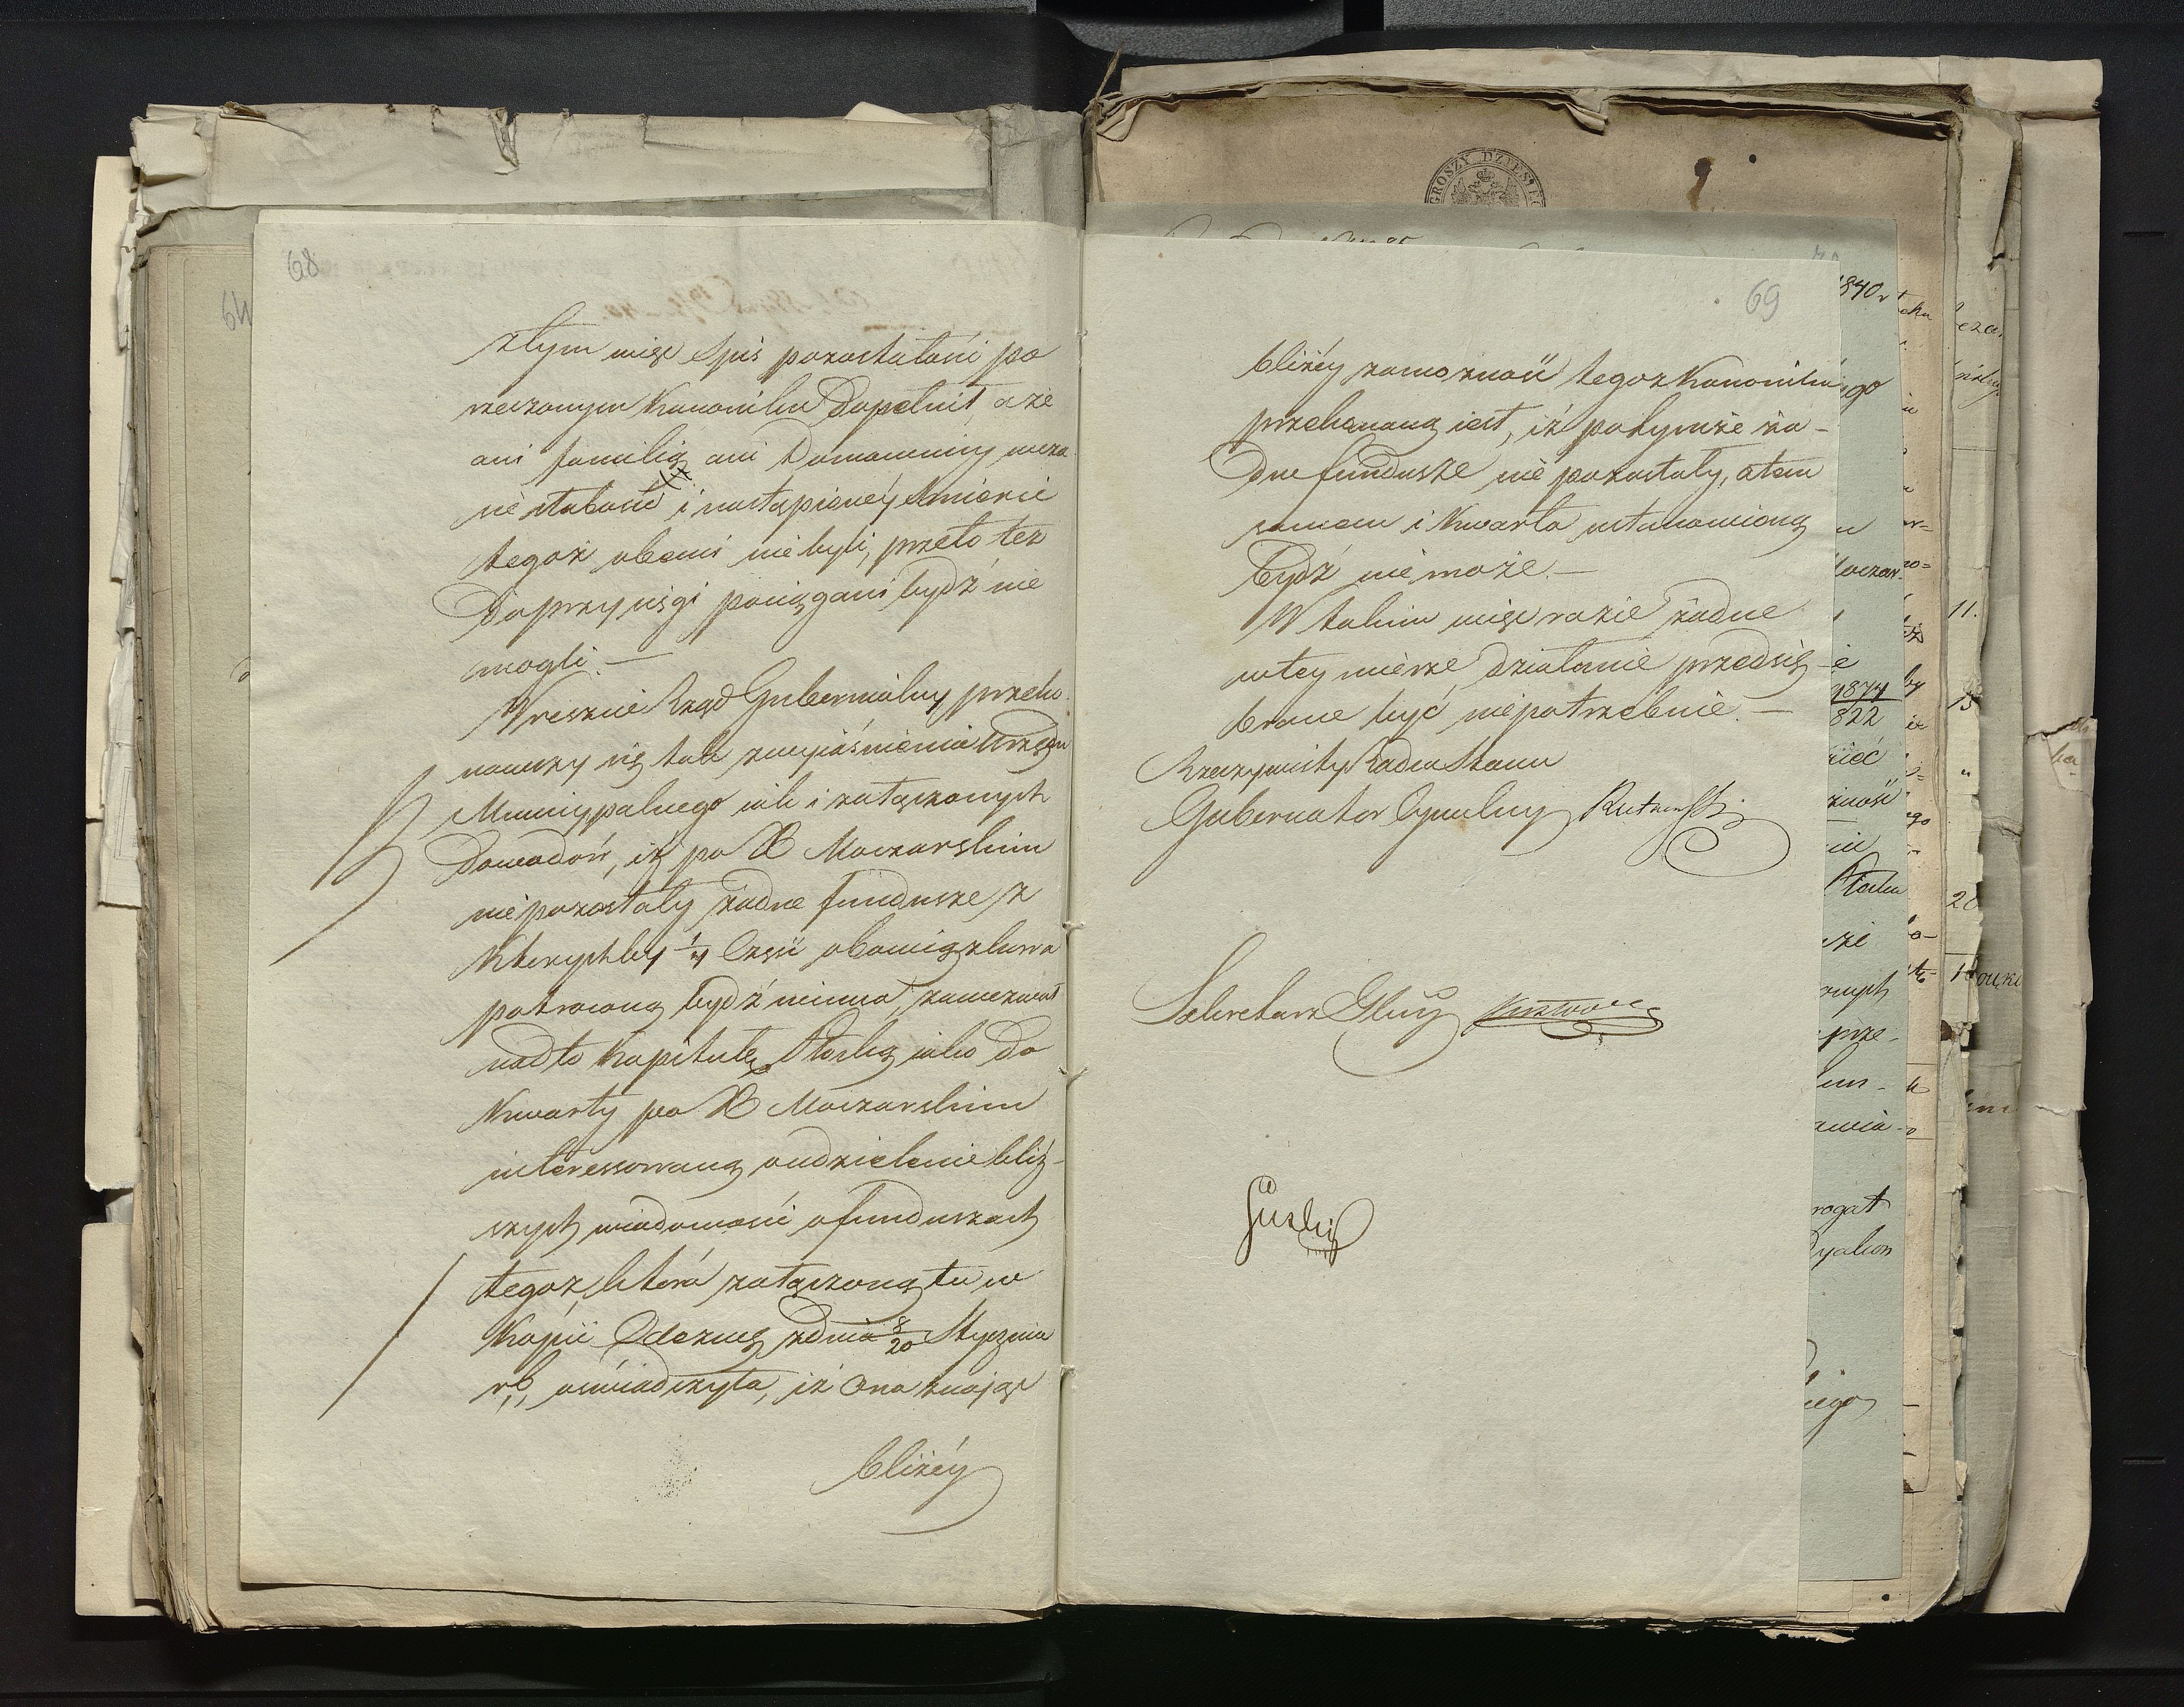 68
z tym więc Spis pozostałości po
rzeczonym Kanoniku Dopełnił, a że
ani familią ani Domownicy w cza
sie słabości i nastąpionéy Śmierci
tegoż obecni nie byli, przeto też
Do przysięgi pociągani bydź nie
mogli. —
Wreszcie Rząd Gubernialny przeko
nawszy się tak z wyiaśnienia Urzędu
Municypalnego iak i załączonych
Dowodów, iż po X Moczarskim
nie pozostały żadne fundusze z
Którychby 1/4 Część obowiązkowa
potrąconą bydź winna, zawezwał
nadto Kapitułę Płocką iako do
Kwarty po X Moczarskim
interessowaną o udzielenie bliż-
szych wiadomości o funduszach
tegoż, która załączoną tu w
Kopii Odezwą z dnia 8/20 Stycznia
rb, oświadczyła, iż Ona znając
bliżéy
69
bliżéy zamożność tegoż Kanonika
przekonaną iest, iż po tymże ża-
dne fundusze nie pozostały, a tem
samem i Kwarta ustanowioną
bydź nie może. —
W takim więc razie żadne
w tey mierze Działanie przedsię-
brane być nie potrzebuie. —
Rzeczywisty Radca Stanu
Gubernator Cywilny
Sekretarz Glny
GROSZY DZIESIĘ
1840 r